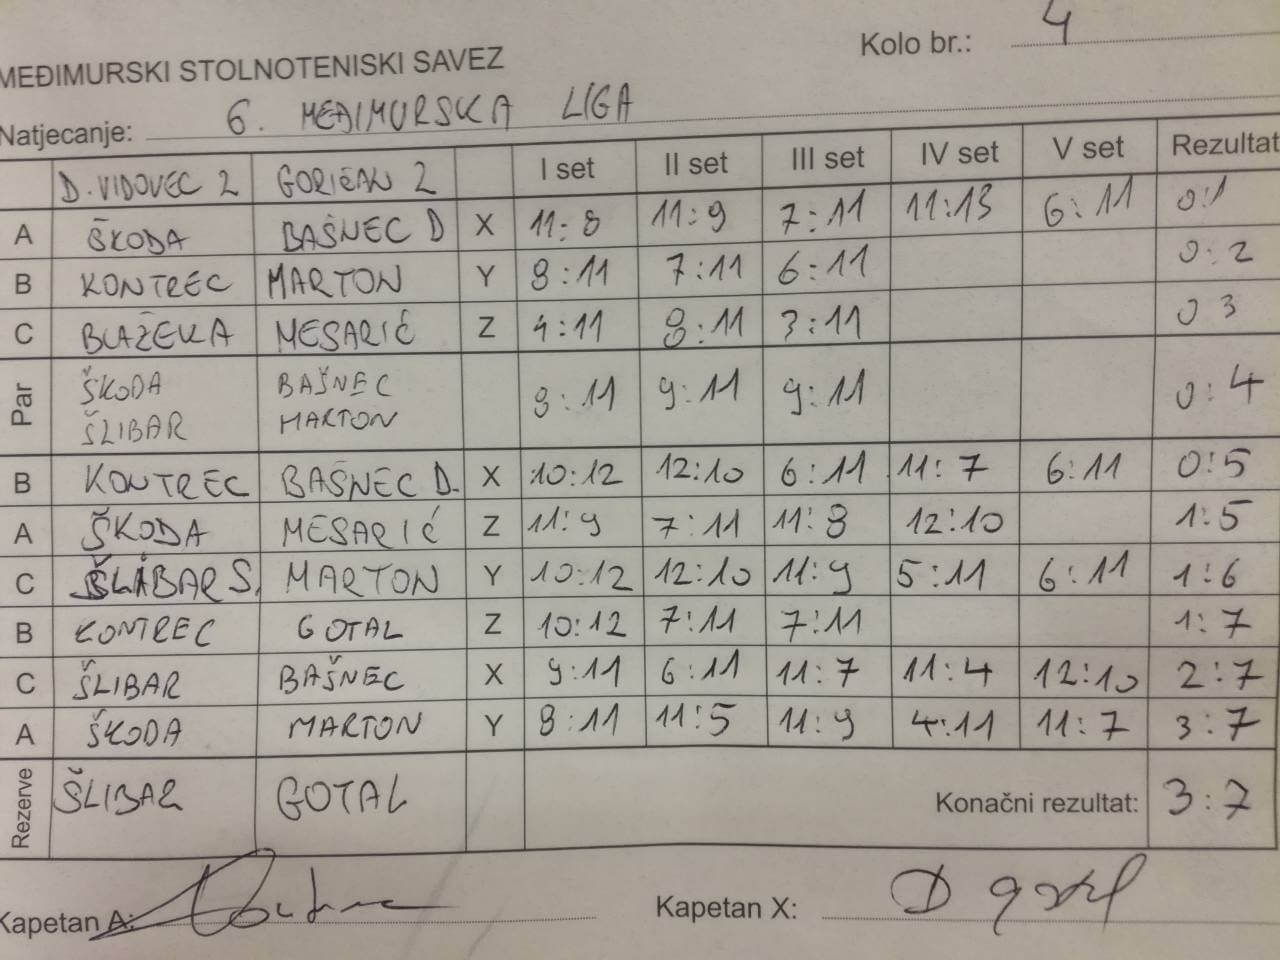 MEĐIMURSKI STOLNOTENISKI SAVEZ
Kolo br.: 4
Natjecanje: 6. MEĐIMURSKA LIGA
D. VIDOVEC 2 GORIČAN 2 I set II set III set IV set V set Rezultat
A ŠKODA BAŠNEC D X 11:8 11:9 7:11 11:13 6:11 0:1
B KONTREC MARTON Y 8:11 7:11 6:11 0:2
C BLAŽEKA MESARIĆ Z 4:11 8:11 3:11 0 3
Par ŠKODA BAŠNEC 8:11 9:11 9:11 0:4
ŠLIBAR MARTON
B KONTREC BAŠNEC D. X 10:12 12:10 6:11 11:7 6:11 0:5
A ŠKODA MESARIĆ Z 11:9 7:11 11:8 12:10 1:5
C ŠLIBAR S. MARTON Y 10:12 12:10 11:9 5:11 6:11 1:6
B KONTREC GOTAL Z 10:12 7:11 7:11 1:7
C ŠLIBAR BAŠNEC X 9:11 6:11 11:7 11:4 12:10 2:7
A ŠKODA MARTON Y 8:11 11:5 11:9 4:11 11:7 3:7
Rezerve ŠLIBAR GOTAL Konačni rezultat: 3:7
Kapetan A: Kapetan X: